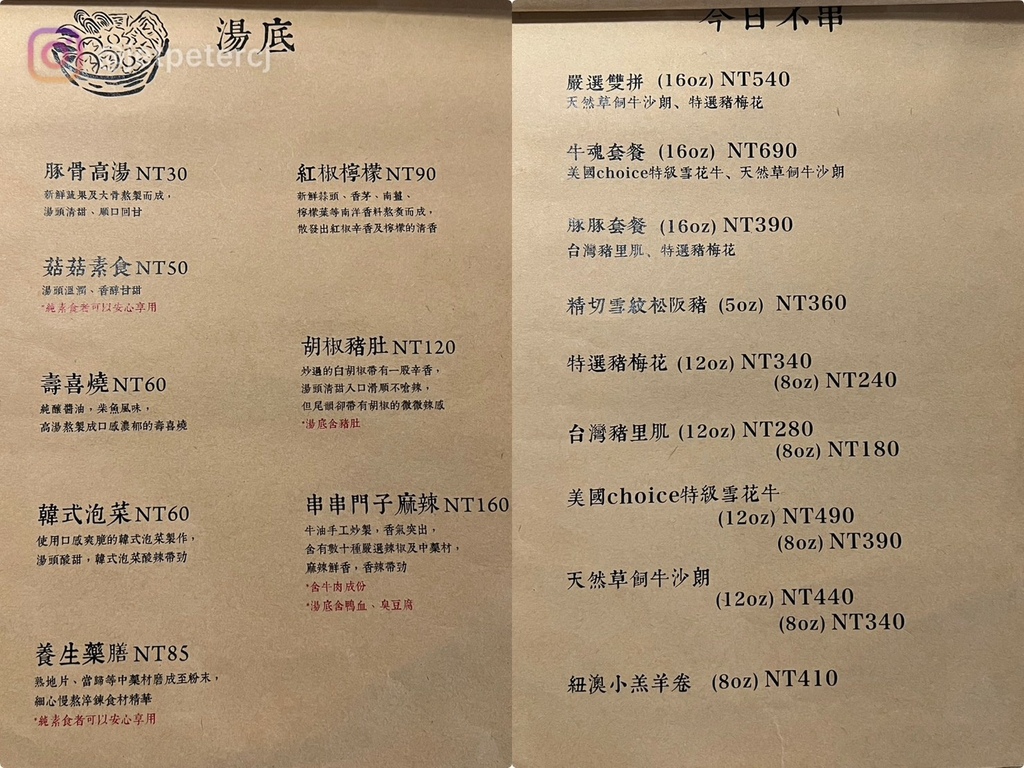 湯底
petercj
豚骨高湯 NT30
新鮮蔬果及大骨熬製而成，
湯頭清甜、順口回甘
菇菇素食 NT50
湯頭溫潤、香醇甘甜
*純素食者可以安心享用
壽喜燒 NT60
純釀醬油，柴魚風味，
高湯熬製成口感濃郁的壽喜燒
韓式泡菜 NT60
使用口感爽脆的韓式泡菜製作，
湯頭酸甜，韓式泡菜酸辣帶勁
養生藥膳 NT85
熟地片、當歸等中藥材磨成至粉末，
細心慢熬淬鍊食材精華
*純素食者可以安心享用
紅椒檸檬 NT90
新鮮蒜頭、香茅、南薑、
檸檬葉等南洋香料熬煮而成，
散發出紅椒辛香及檸檬的清香
胡椒豬肚 NT120
炒過的白胡椒帶有一股辛香，
湯頭清甜入口滑順不嗆辣，
但尾韻卻帶有胡椒的微微辣感
*湯底含豬肚
串串門子麻辣 NT160
牛油手工炒製，香氣突出，
含有數十種嚴選辣椒及中藥材，
麻辣鮮香，香辣帶勁
*含牛肉成份
*湯底含鴨血、臭豆腐
今日不串
嚴選雙拼 (16oz) NT540
天然草飼牛沙朗、特選豬梅花
牛魂套餐 (16oz) NT690
美國choice特級雪花牛、天然草飼牛沙朗
豚豚套餐 (16oz) NT390
台灣豬里肌、特選豬梅花
精切雪紋松阪豬 (5oz) NT360
特選豬梅花 (12oz) NT340
(8oz) NT240
台灣豬里肌 (12oz) NT280
(8oz) NT180
美國choice特級雪花牛
(12oz) NT490
(8oz) NT390
天然草飼牛沙朗
(12oz) NT440
(8oz) NT340
紐澳小羔羊卷 (8oz) NT410